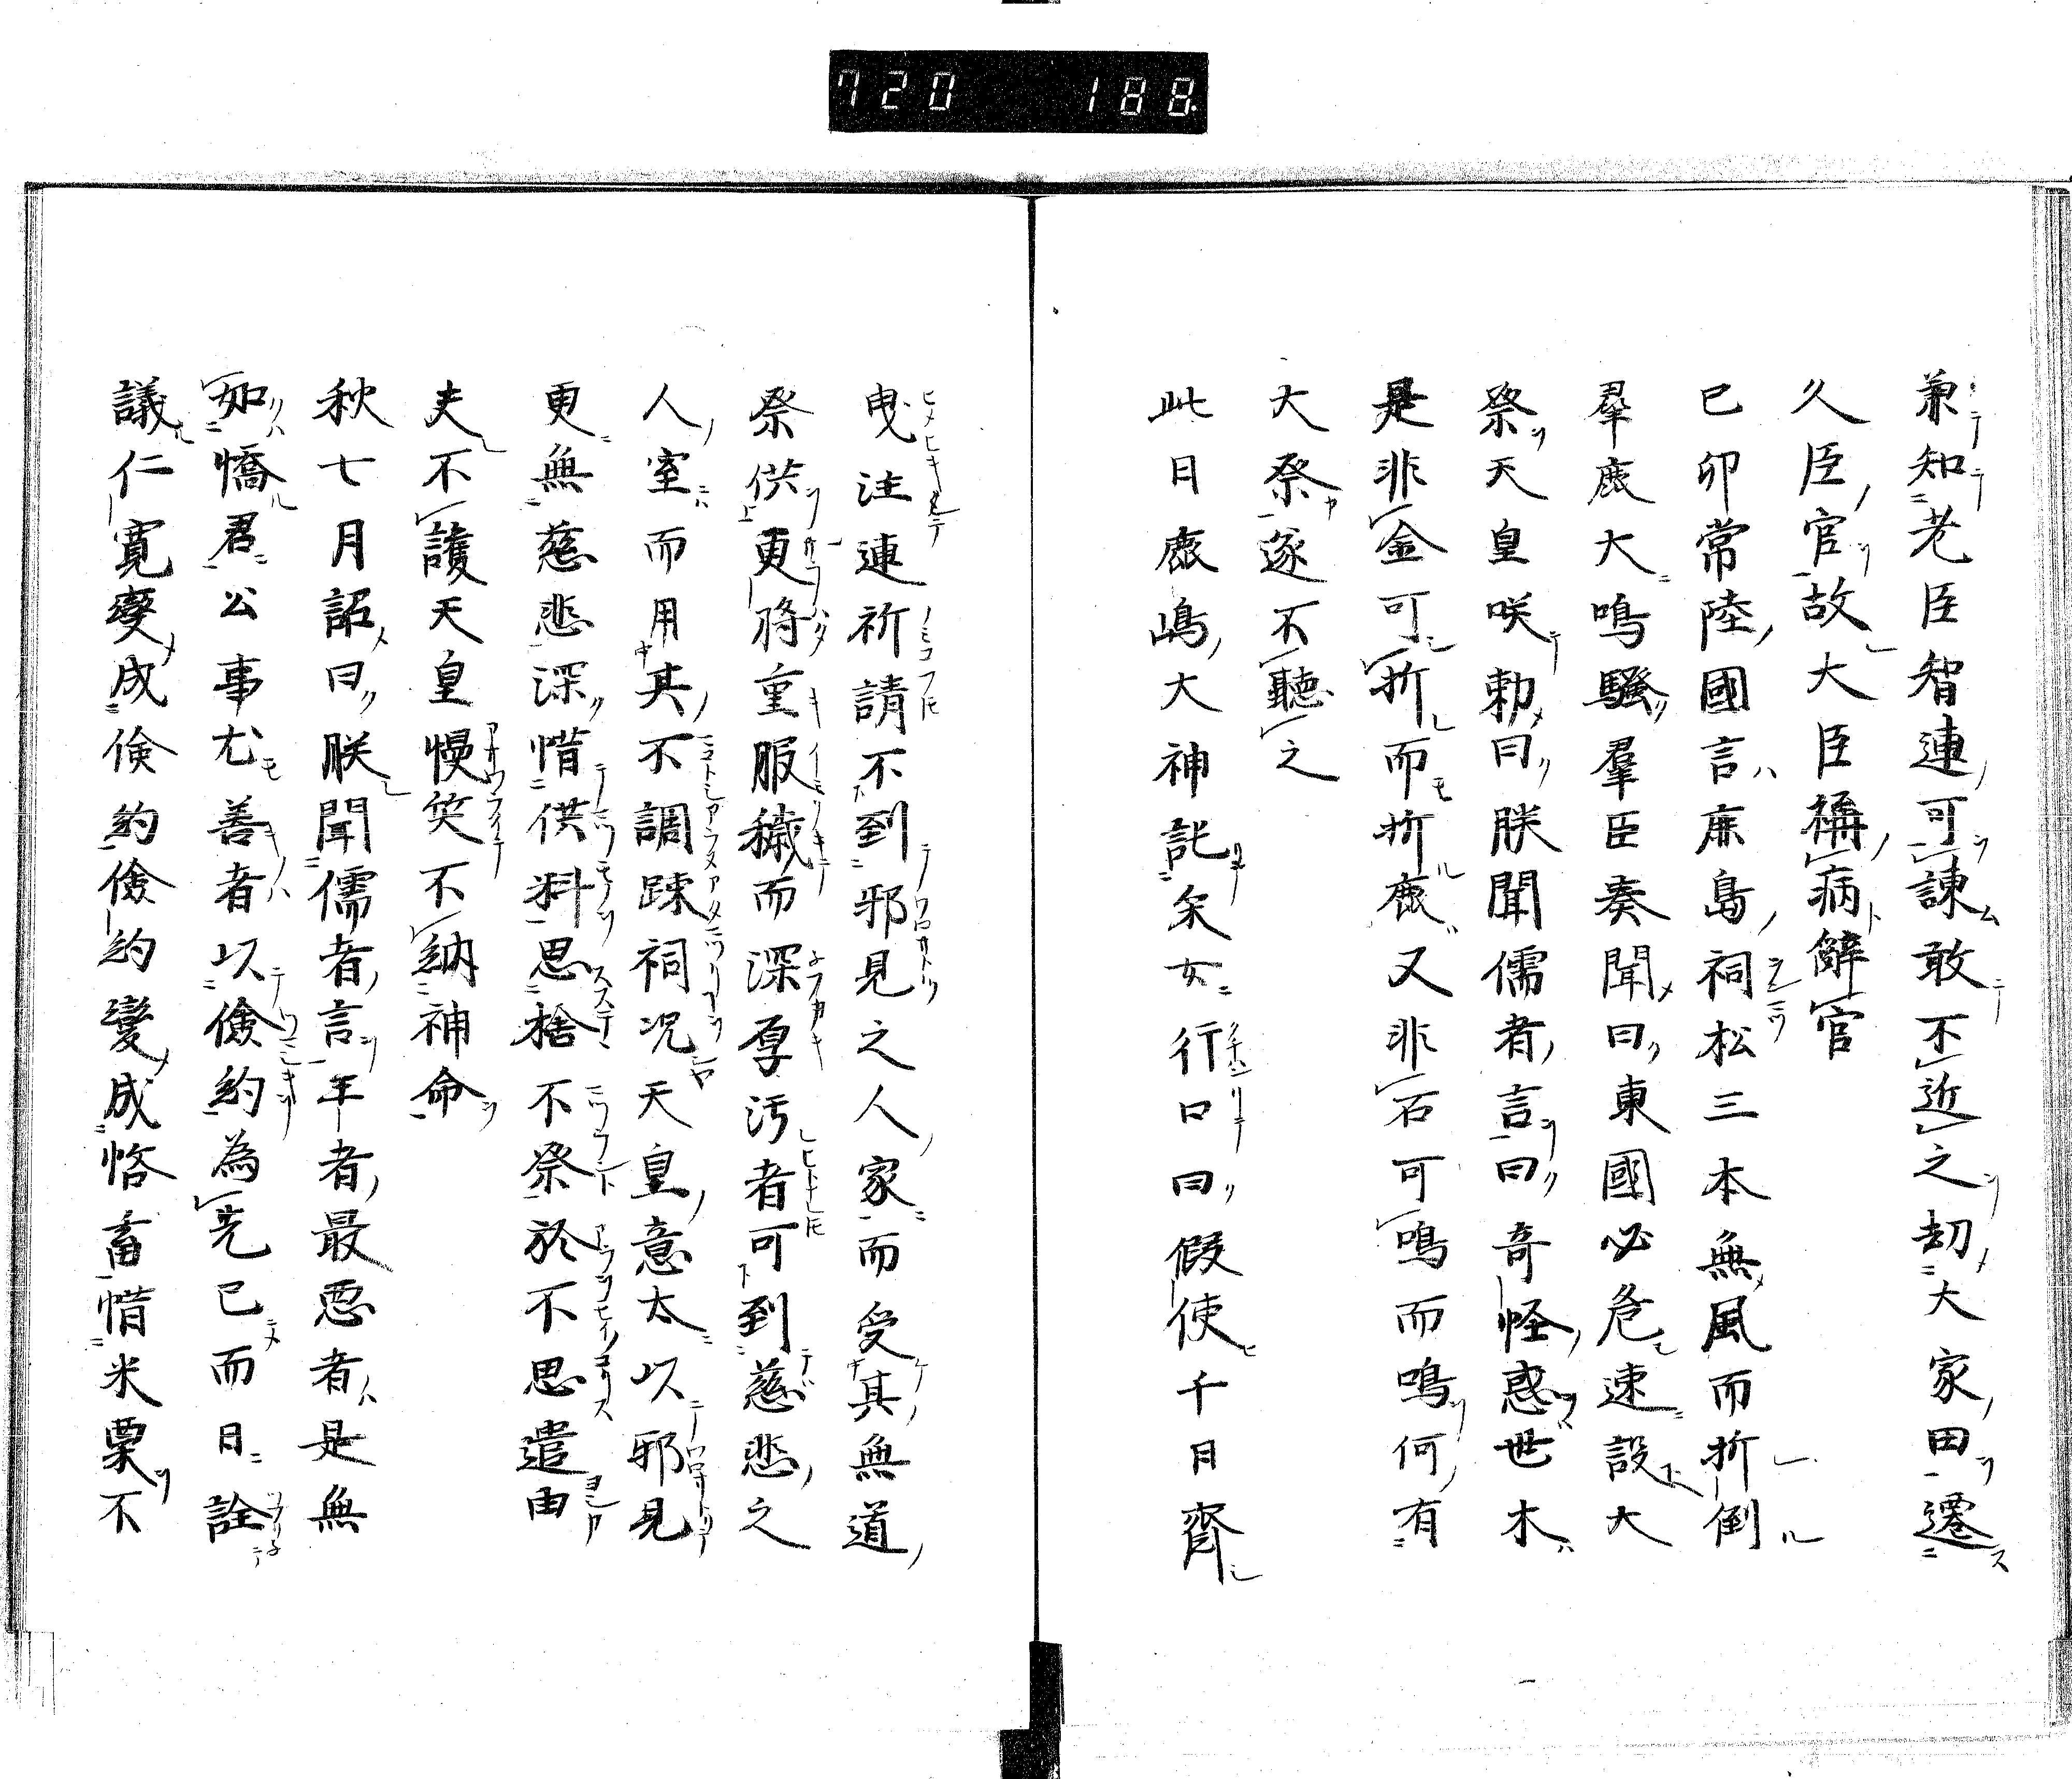 720 188
兼知老臣智連可諌敢不近之劫大家田遷
久臣官故大臣稱病辭官
己卯常陸國言鹿島祠松三本無風而折倒
羣鹿大鳴騷羣臣奏聞曰東國必危速設大
祭天皇咲勅曰朕聞儒者言曰奇怪惑世木
是非金可折而折鹿又非石可鳴而鳴何有
大祭遂不聽之
此日鹿嶋大神託采女行口曰假使千月齋
曳注連祈請不到邪見之人家而受其無道
祭供更將重服穢而深厚汚者可到慈悲之
人室而用其不調踈祠况天皇意太以邪見
更無慈悲深惜供料思捨不祭於不思遣由
夫不護天皇慢笑不納神命
秋七月詔曰朕聞儒者言年者最惡者是無
如憍君公事尤善者以儉約為先已而日詮
議仁寛變成儉約儉約變成悋畜惜米粟不